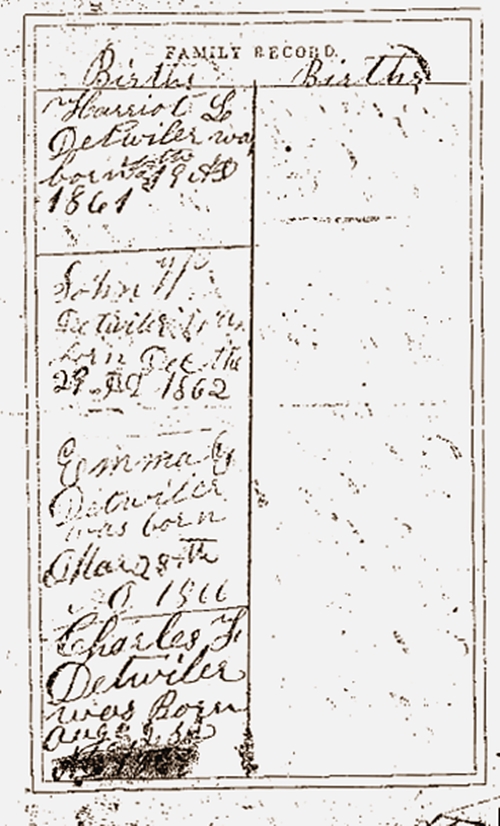 FAMILY RECORD.
Births Births
Harriot L
Detwiler was
born the 19 AD
1861
John W
Detwiler was
born Dec the
29 AD 1862
Emma
Detwiler
was born
Mar 28th
1866
Charles F.
Detwiler
was Born
aug